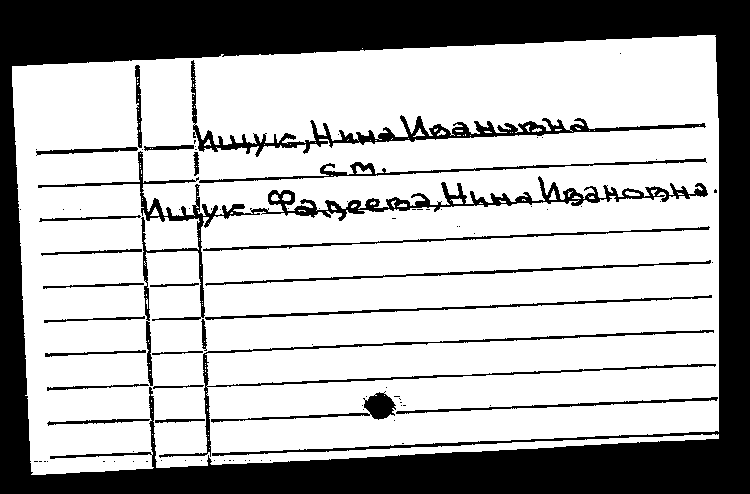 Ищук, Нина Ивановна
см.
Ищук-Фадеева, Нина Ивановна.